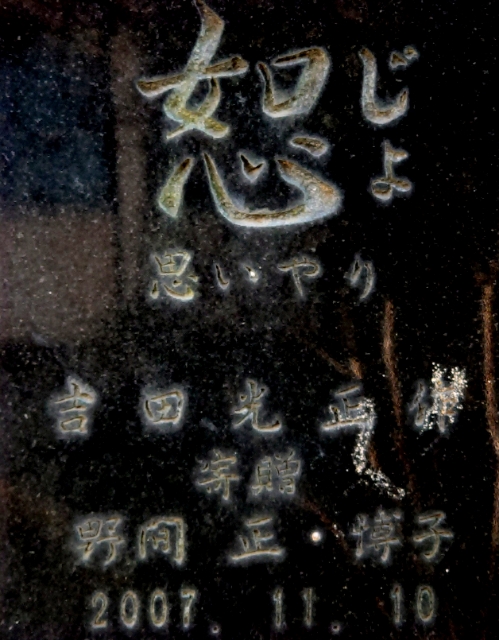 恕 じょ
思いやり
吉田光正
寄贈
野間正・博子
2007. 11. 10